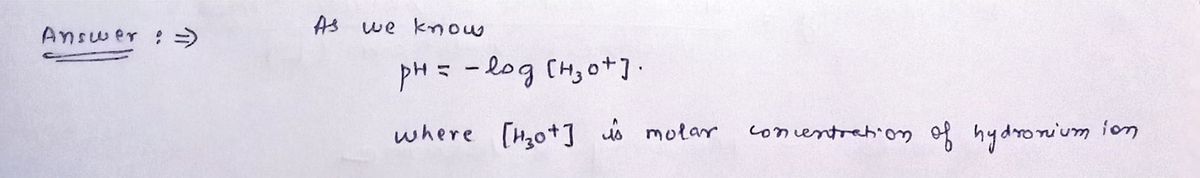 Answer : ⇒ As we know
pH = - log [H₃O⁺].
where [H₃O⁺] is molar concentration of hydronium ion